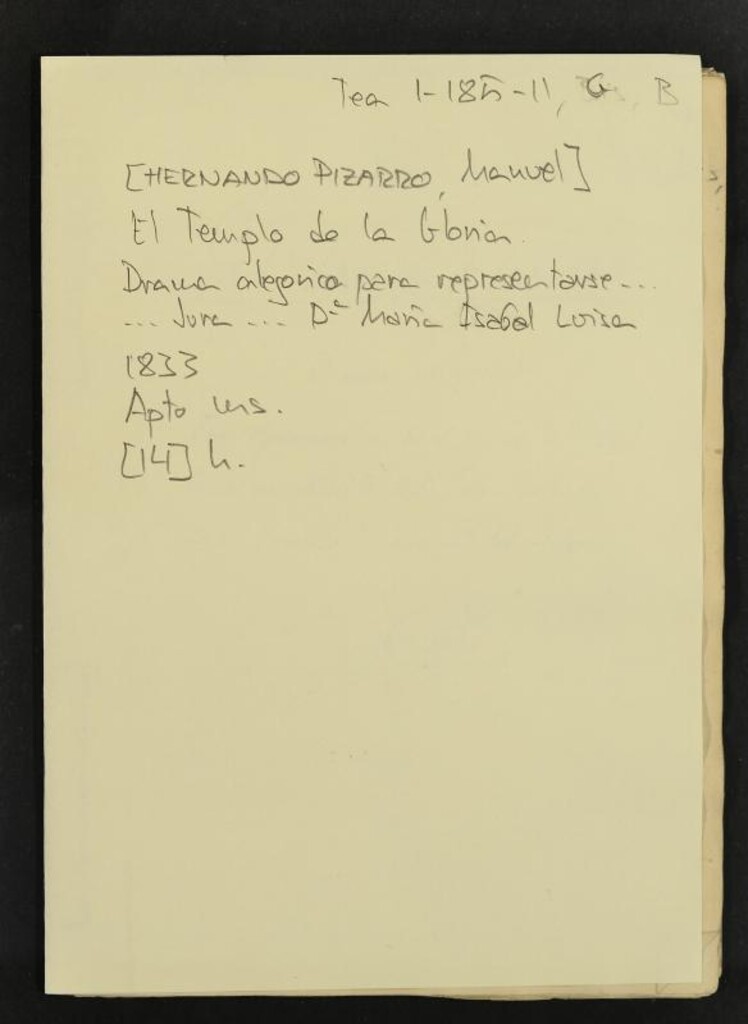 Tea 1-185-11, G B
[HERNANDO PIZARRO, Manuel]
El Templo de la Gloria
Drama alegorico para representarse ...
... Jura ... Dª Maria Isabel Luisa
1833
Apto ms.
[14] h.